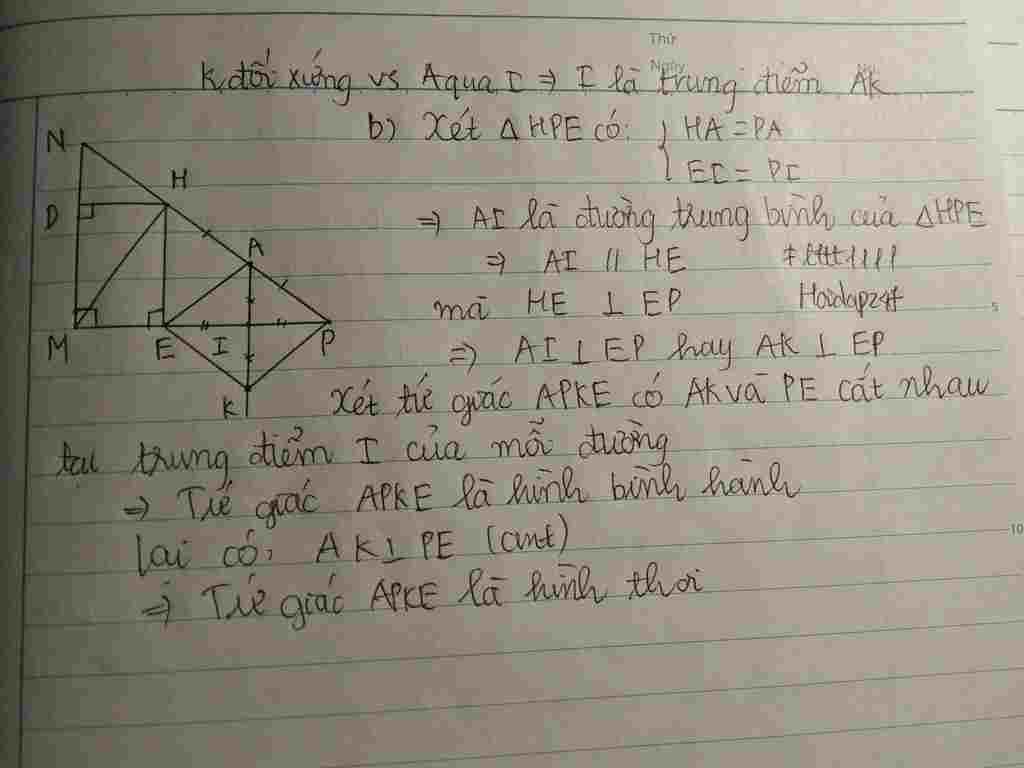 Thứ
Ngày
K đối xứng vs A qua I ⇒ I là trung điểm AK
b) Xét △HPE có: { HA = PA
EI = PI
⇒ AI là đường trung bình của △HPE
⇒ AI // HE
mà HE ⊥ EP
Hoidap247
⇒ AI ⊥ EP hay AK ⊥ EP
Xét tứ giác APKE có AK và PE cắt nhau
tại trung điểm I của mỗi đường
⇒ Tứ giác APKE là hình bình hành
lại có, AK ⊥ PE (cmt)
⇒ Tứ giác APKE là hình thoi
N
H
D
A
M
E
I
P
K
5
10